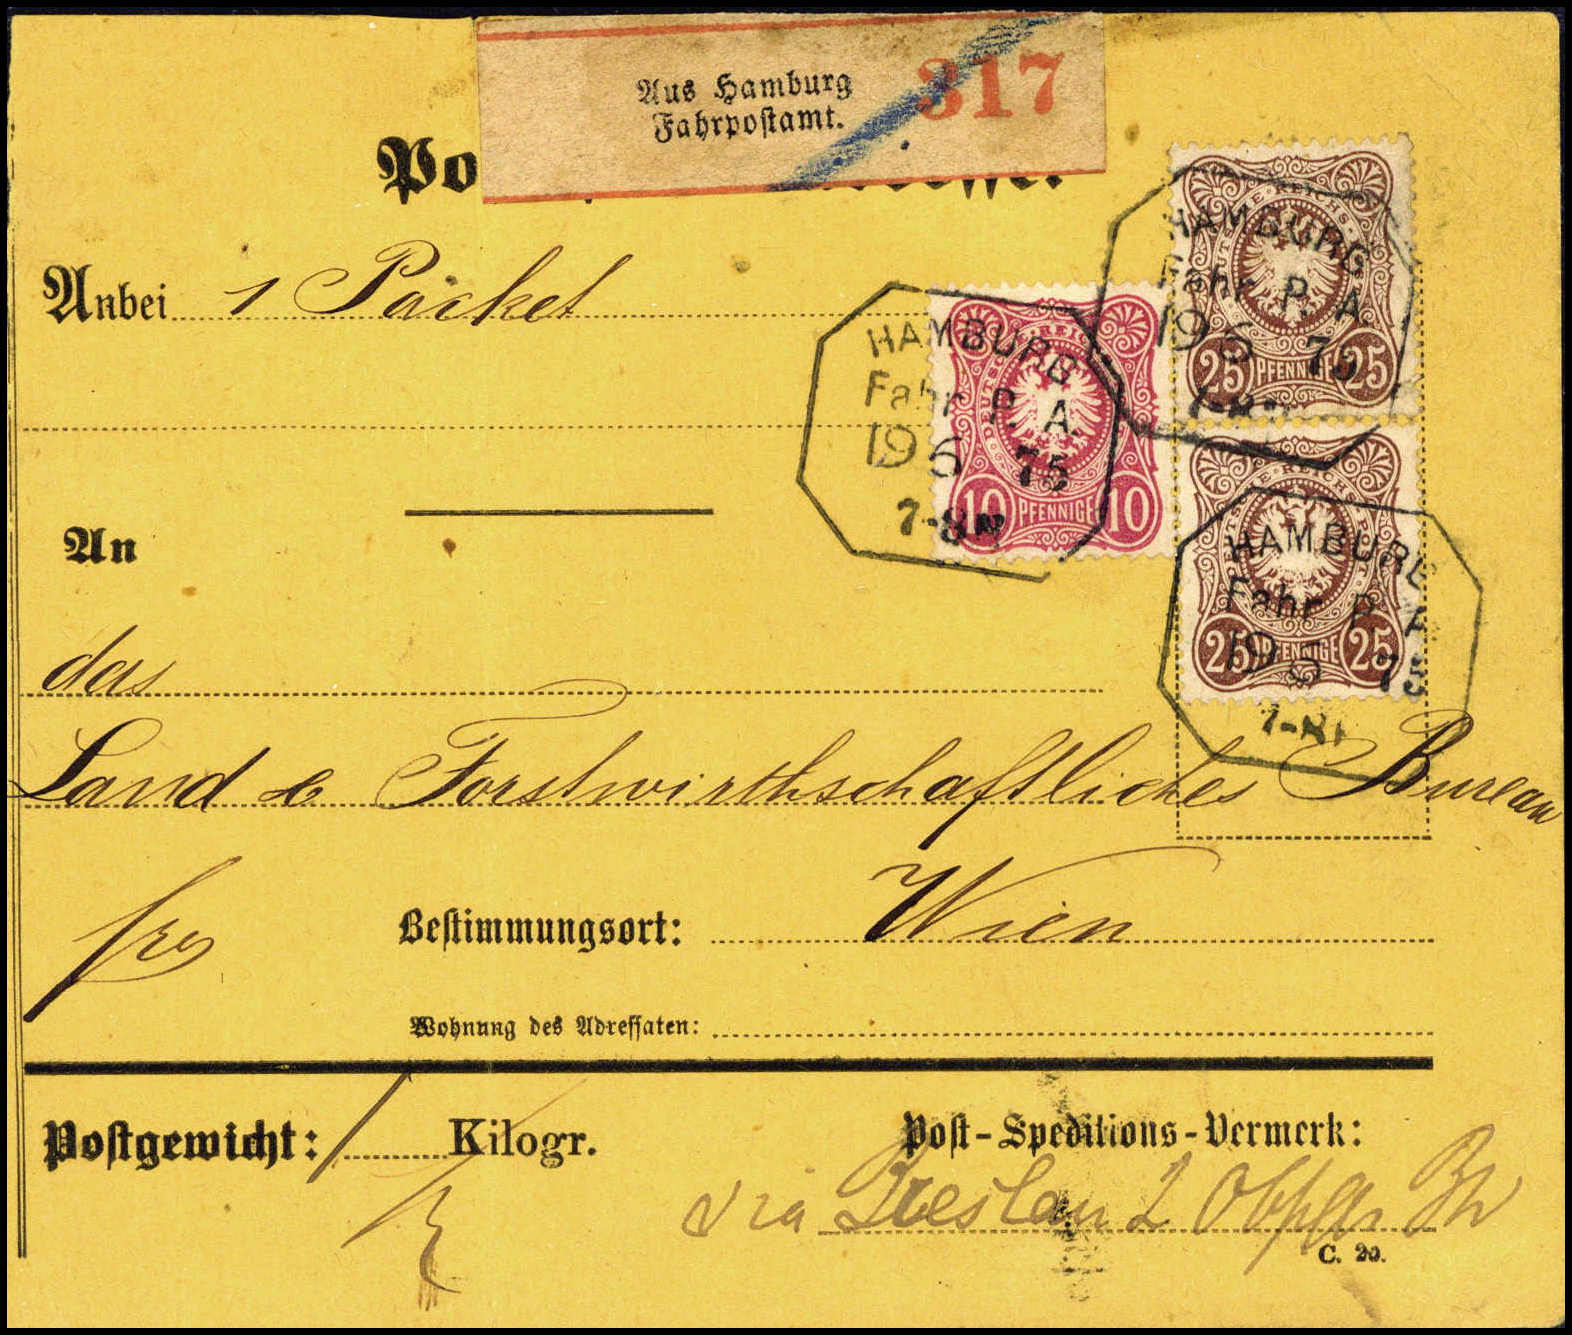 Aus Hamburg 317
Fahrpostamt.
Anbei 1 Packet
HAMBURG
Fahr P. A.
19 6 75
7-8N
DEUTSCHE REICHS-POST
25 PFENNIGE 25
HAMBURG
Fahr P. A.
19 6 75
7-8N
DEUTSCHE REICHS-POST
10 PFENNIGE 10
HAMBURG
Fahr P. A
19 6 75
7-8N
DEUTSCHE REICHS-POST
25 PFENNIGE 25
An
das
Land & Forstwirthschaftliches Bureau
Bestimmungsort: Wien
Wohnung des Adressaten:
Postgewicht: Kilogr.
Post-Speditions-Vermerk:
via Breslau 2
C. 20.